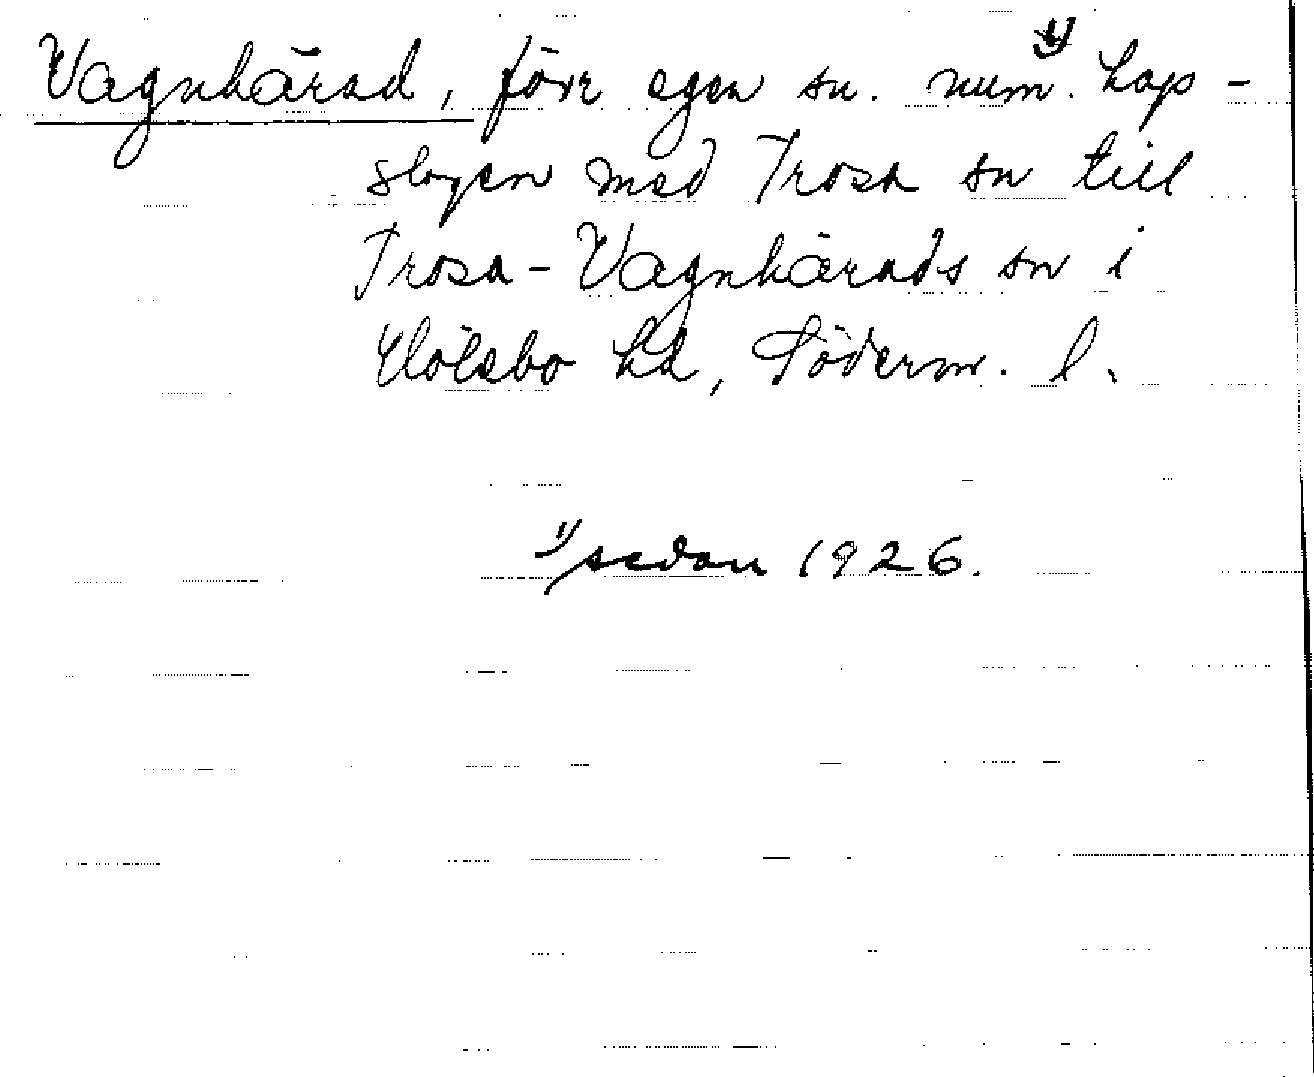 Vagnhärad, förr egen sn. num.¹⁾ hop-
slagen med Trosa sn till
Trosa-Vagnhärads sn i
Hölebo hd, Söderm. l.
¹⁾ sedan 1926.